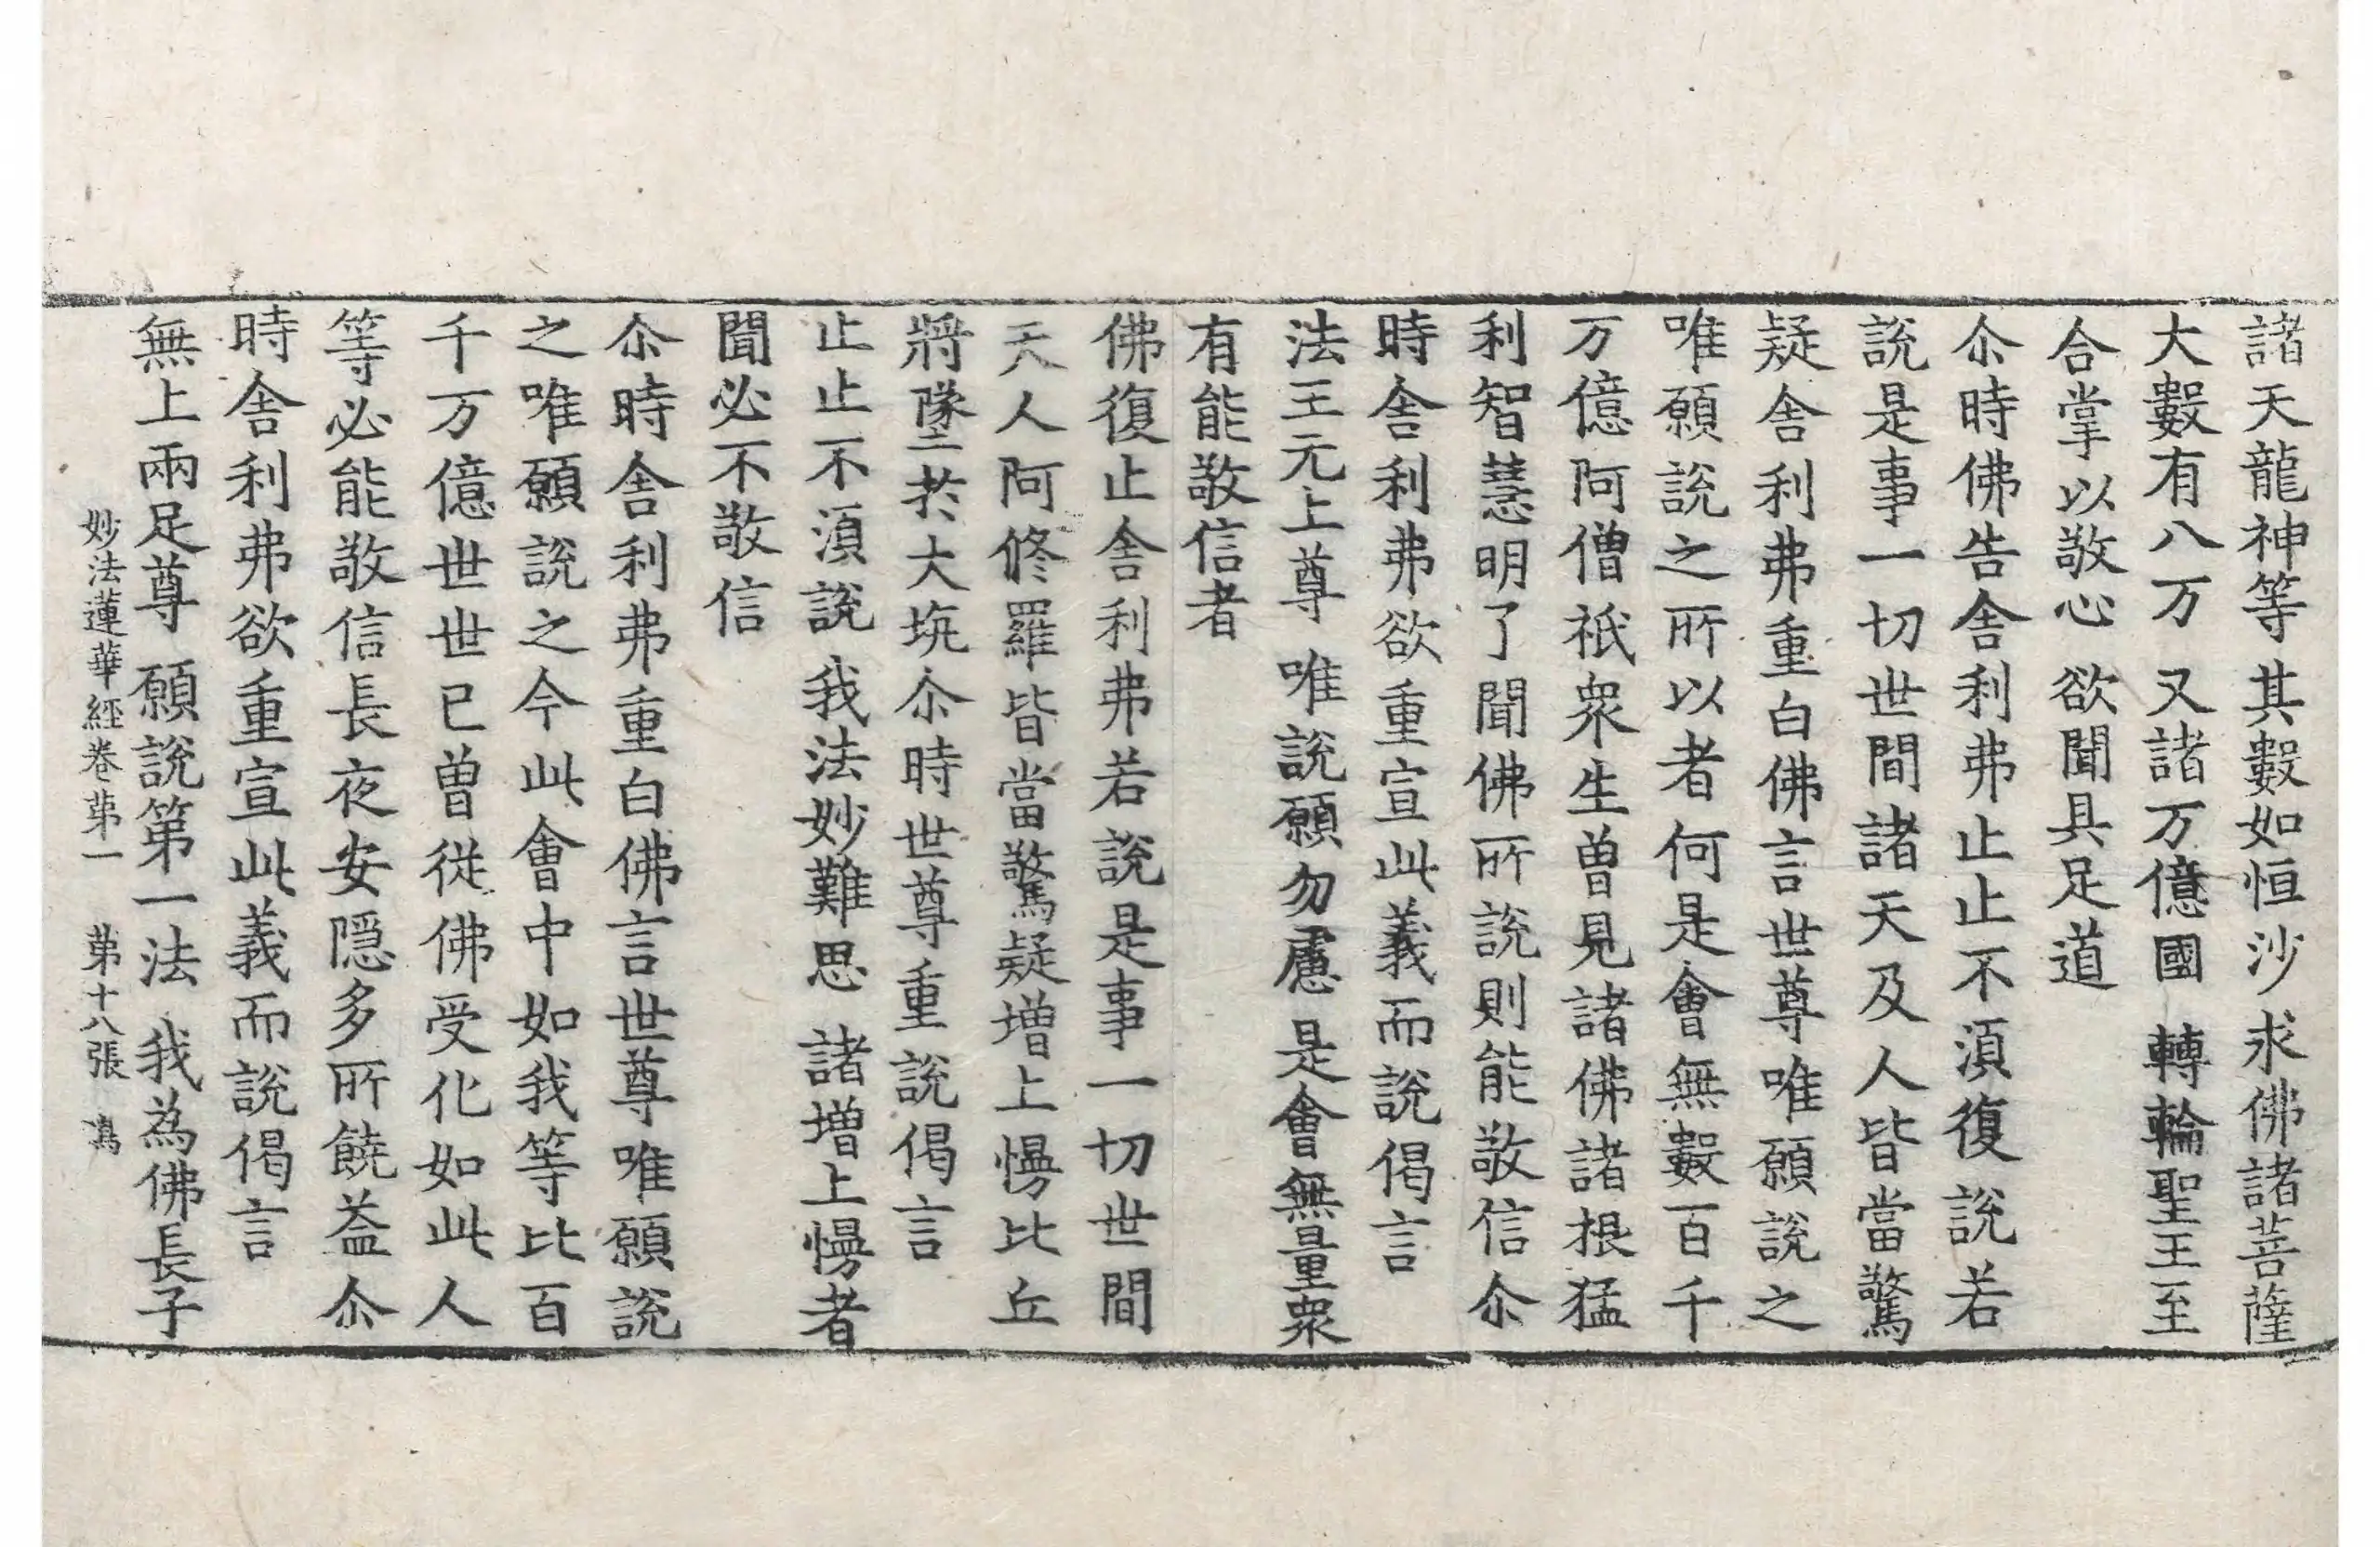 諸天龍神等 其數如恒沙 求佛諸菩薩
大數有八万 又諸万億國 轉輪聖王至
合掌以敬心 欲聞具足道
尒時佛告舍利弗止止不須復說若
說是事一切世間諸天及人皆當驚
疑舍利弗重白佛言世尊唯願說之
唯願說之所以者何是會無數百千
万億阿僧祇衆生曾見諸佛諸根猛
利智慧明了聞佛所說則能敬信尒
時舍利弗欲重宣此義而說偈言
法王无上尊 唯說願勿慮 是會無量衆
有能敬信者
佛復止舍利弗若說是事一切世間
天人阿修羅皆當驚疑增上慢比丘
將墜於大坑尒時世尊重說偈言
止止不須說 我法妙難思 諸增上慢者
聞必不敬信
尒時舍利弗重白佛言世尊唯願說
之唯願說之今此會中如我等比百
千万億世世已曾從佛受化如此人
等必能敬信長夜安隱多所饒益尒
時舍利弗欲重宣此義而說偈言
無上兩足尊 願說第一法 我為佛長子
妙法蓮華經卷苐一 苐十八張 馮